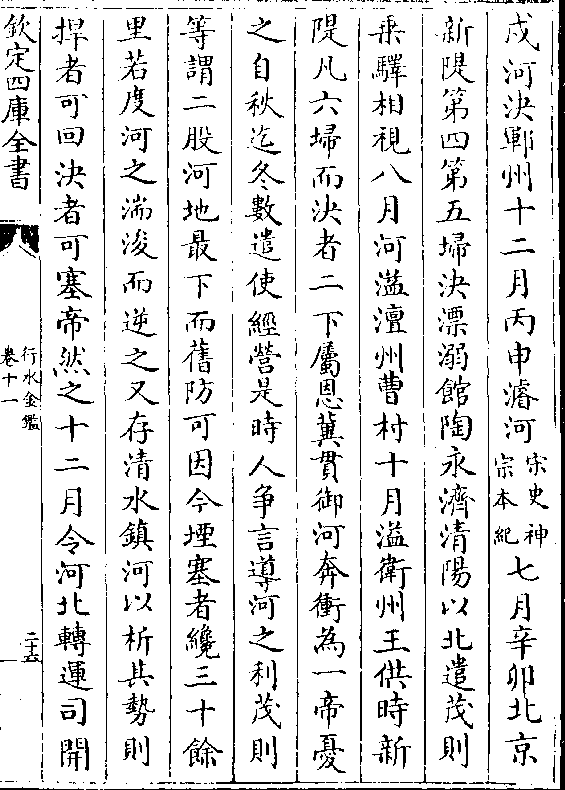 戍河決鄆州十二月丙申濬河宋史神
宗本紀七月辛卯北京
新隄第四第五埽決漂溺館陶永濟清陽以北遣茂則
乗驛相視八月河溢澶州曹村十月溢衛州王供時新
隄凡六埽而決者二下屬恩冀貫御河奔衝為一帝憂
之自秋迄冬數遣使經營是時人争言導河之利茂則
等謂二股河地最下而舊防可因今堙塞者纔三十餘
里若度河之湍浚而逆之又存清水鎮河以析其勢則
捍者可回決者可塞帝然之十二月令河北轉運司開
欽定四庫全書
行水金鑑
卷十一
二十六